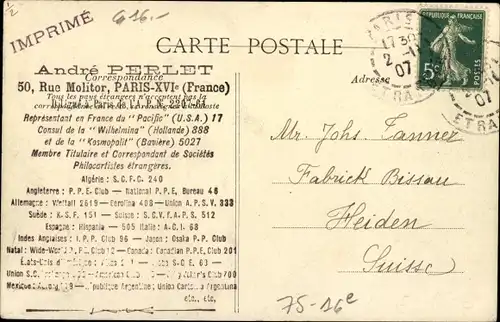 1/2
IMPRIMÉ
616.—
CARTE POSTALE
RÉPUBLIQUE FRANÇAISE
5c
POSTES
PARIS
17 30
2 -1
07
ETRA
07
ETRA
André PERLET
Correspondance
Adresse
50, Rue Molitor, PARIS-XVIe (France)
Tous les pays étrangers n'acceptent pas la
Délégué à Paris de l'A.P.N. 2207-64
Représentant en France du "Pacific" (U.S.A.) 17
Consul de la "Wilhelmina" (Hollande) 388
et de la "Kosmopolit" (Bavière) 5027
Membre Titulaire et Correspondant de Sociétés
Philocartistes étrangères.
Algérie : S.C.F.C. 240
Angleterre : P.P.E. Club — National P.P.E. Bureau 46
Allemagne : Weltall 2619 — Carolina 408 — Union A.P.S.V. 333
Suède : K.S.F. 151 — Suisse : S.C.V.f.A.P.S. 512
Espagne : Hispania — 505 Italie : A.C.I. 68
Indes Anglaises : I.P.P. Club 96 — Japon : Osaka P.P. Club
Natal : Wide-World P.P. — Canada : Canadian P.P.E. Club 201
S.Q.E. 63 —
Union S.C. Club 700
Mexique : République Argentine : Union Cartófila Argentina
etc., etc.
Mr. Johs. Tanner
Fabrick Bissau
Heiden
Suisse
75-16e